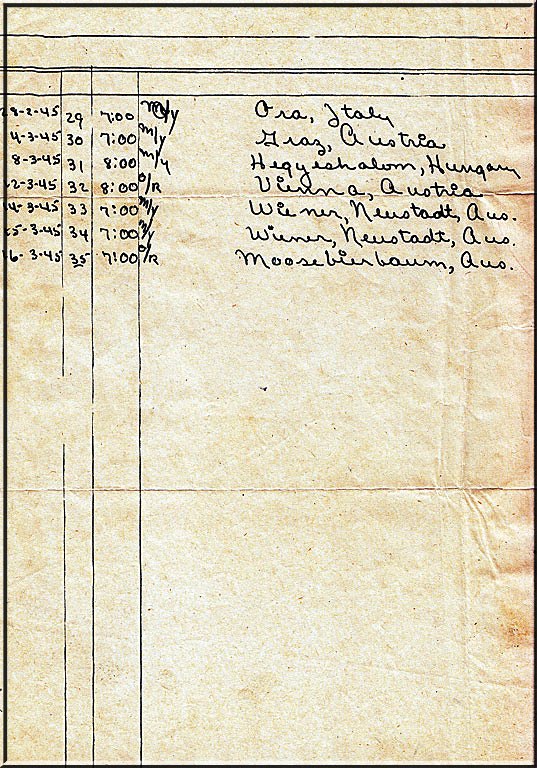 28-2-45 29 7:00 M/Y Ora, Italy
4-3-45 30 7:00 M/Y Graz, Austria
8-3-45 31 8:00 M/Y Hegyeshalom, Hungary
2-3-45 32 8:00 O/R Vienna, Austria
4-3-45 33 7:00 M/Y Wiener, Neustadt, Aus.
5-3-45 34 7:00 Wiener, Neustadt, Aus.
6-3-45 35 7:00 O/R Moosebierbaum, Aus.